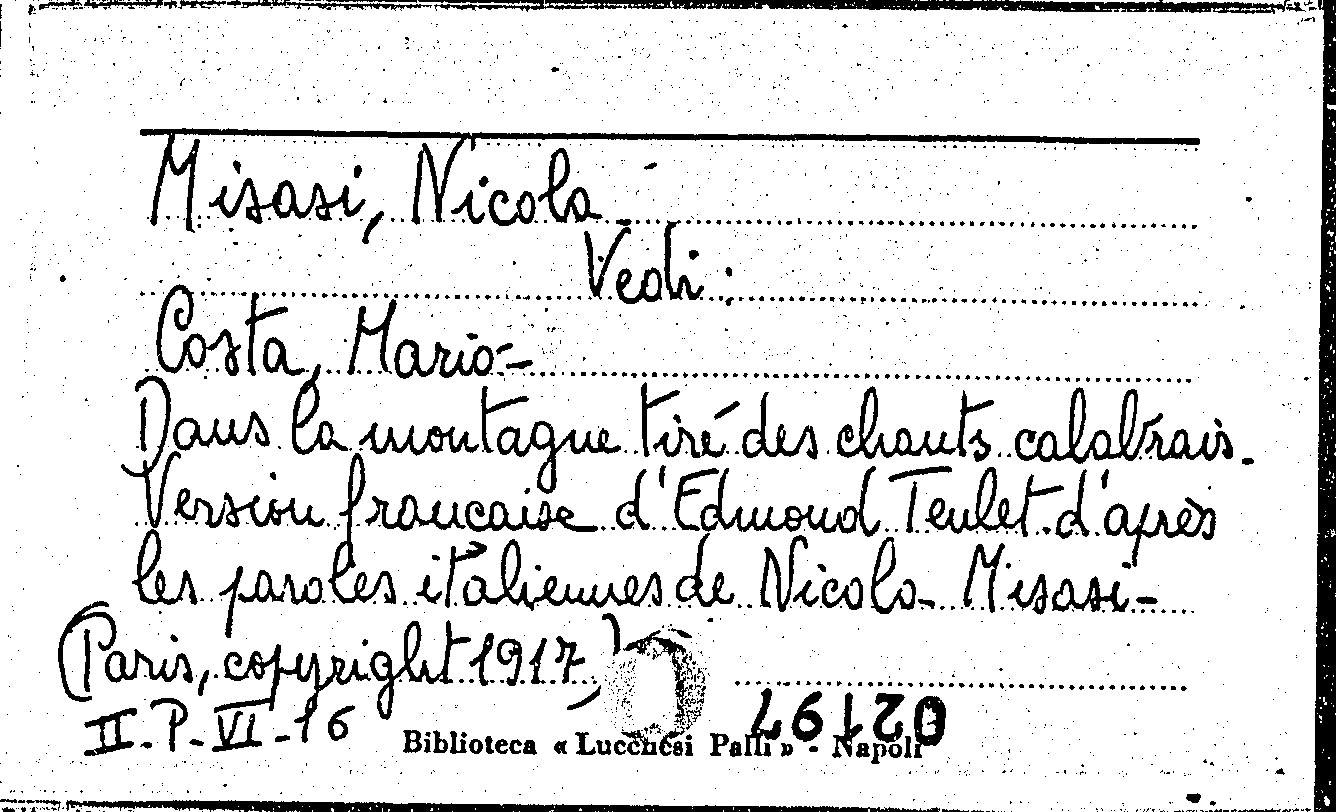 Misasi, Nicola -
Vedi:
Costa, Mario =
Dans la montagne tiré des chants calabrais.
Version francaise d'Edmond Teulet d'après
les paroles italiennes de Nicola Misasi -
(Paris, copyright 1917,)
II-P-VI-16
Biblioteca « Lucchesi Palli » - Napoli
021197